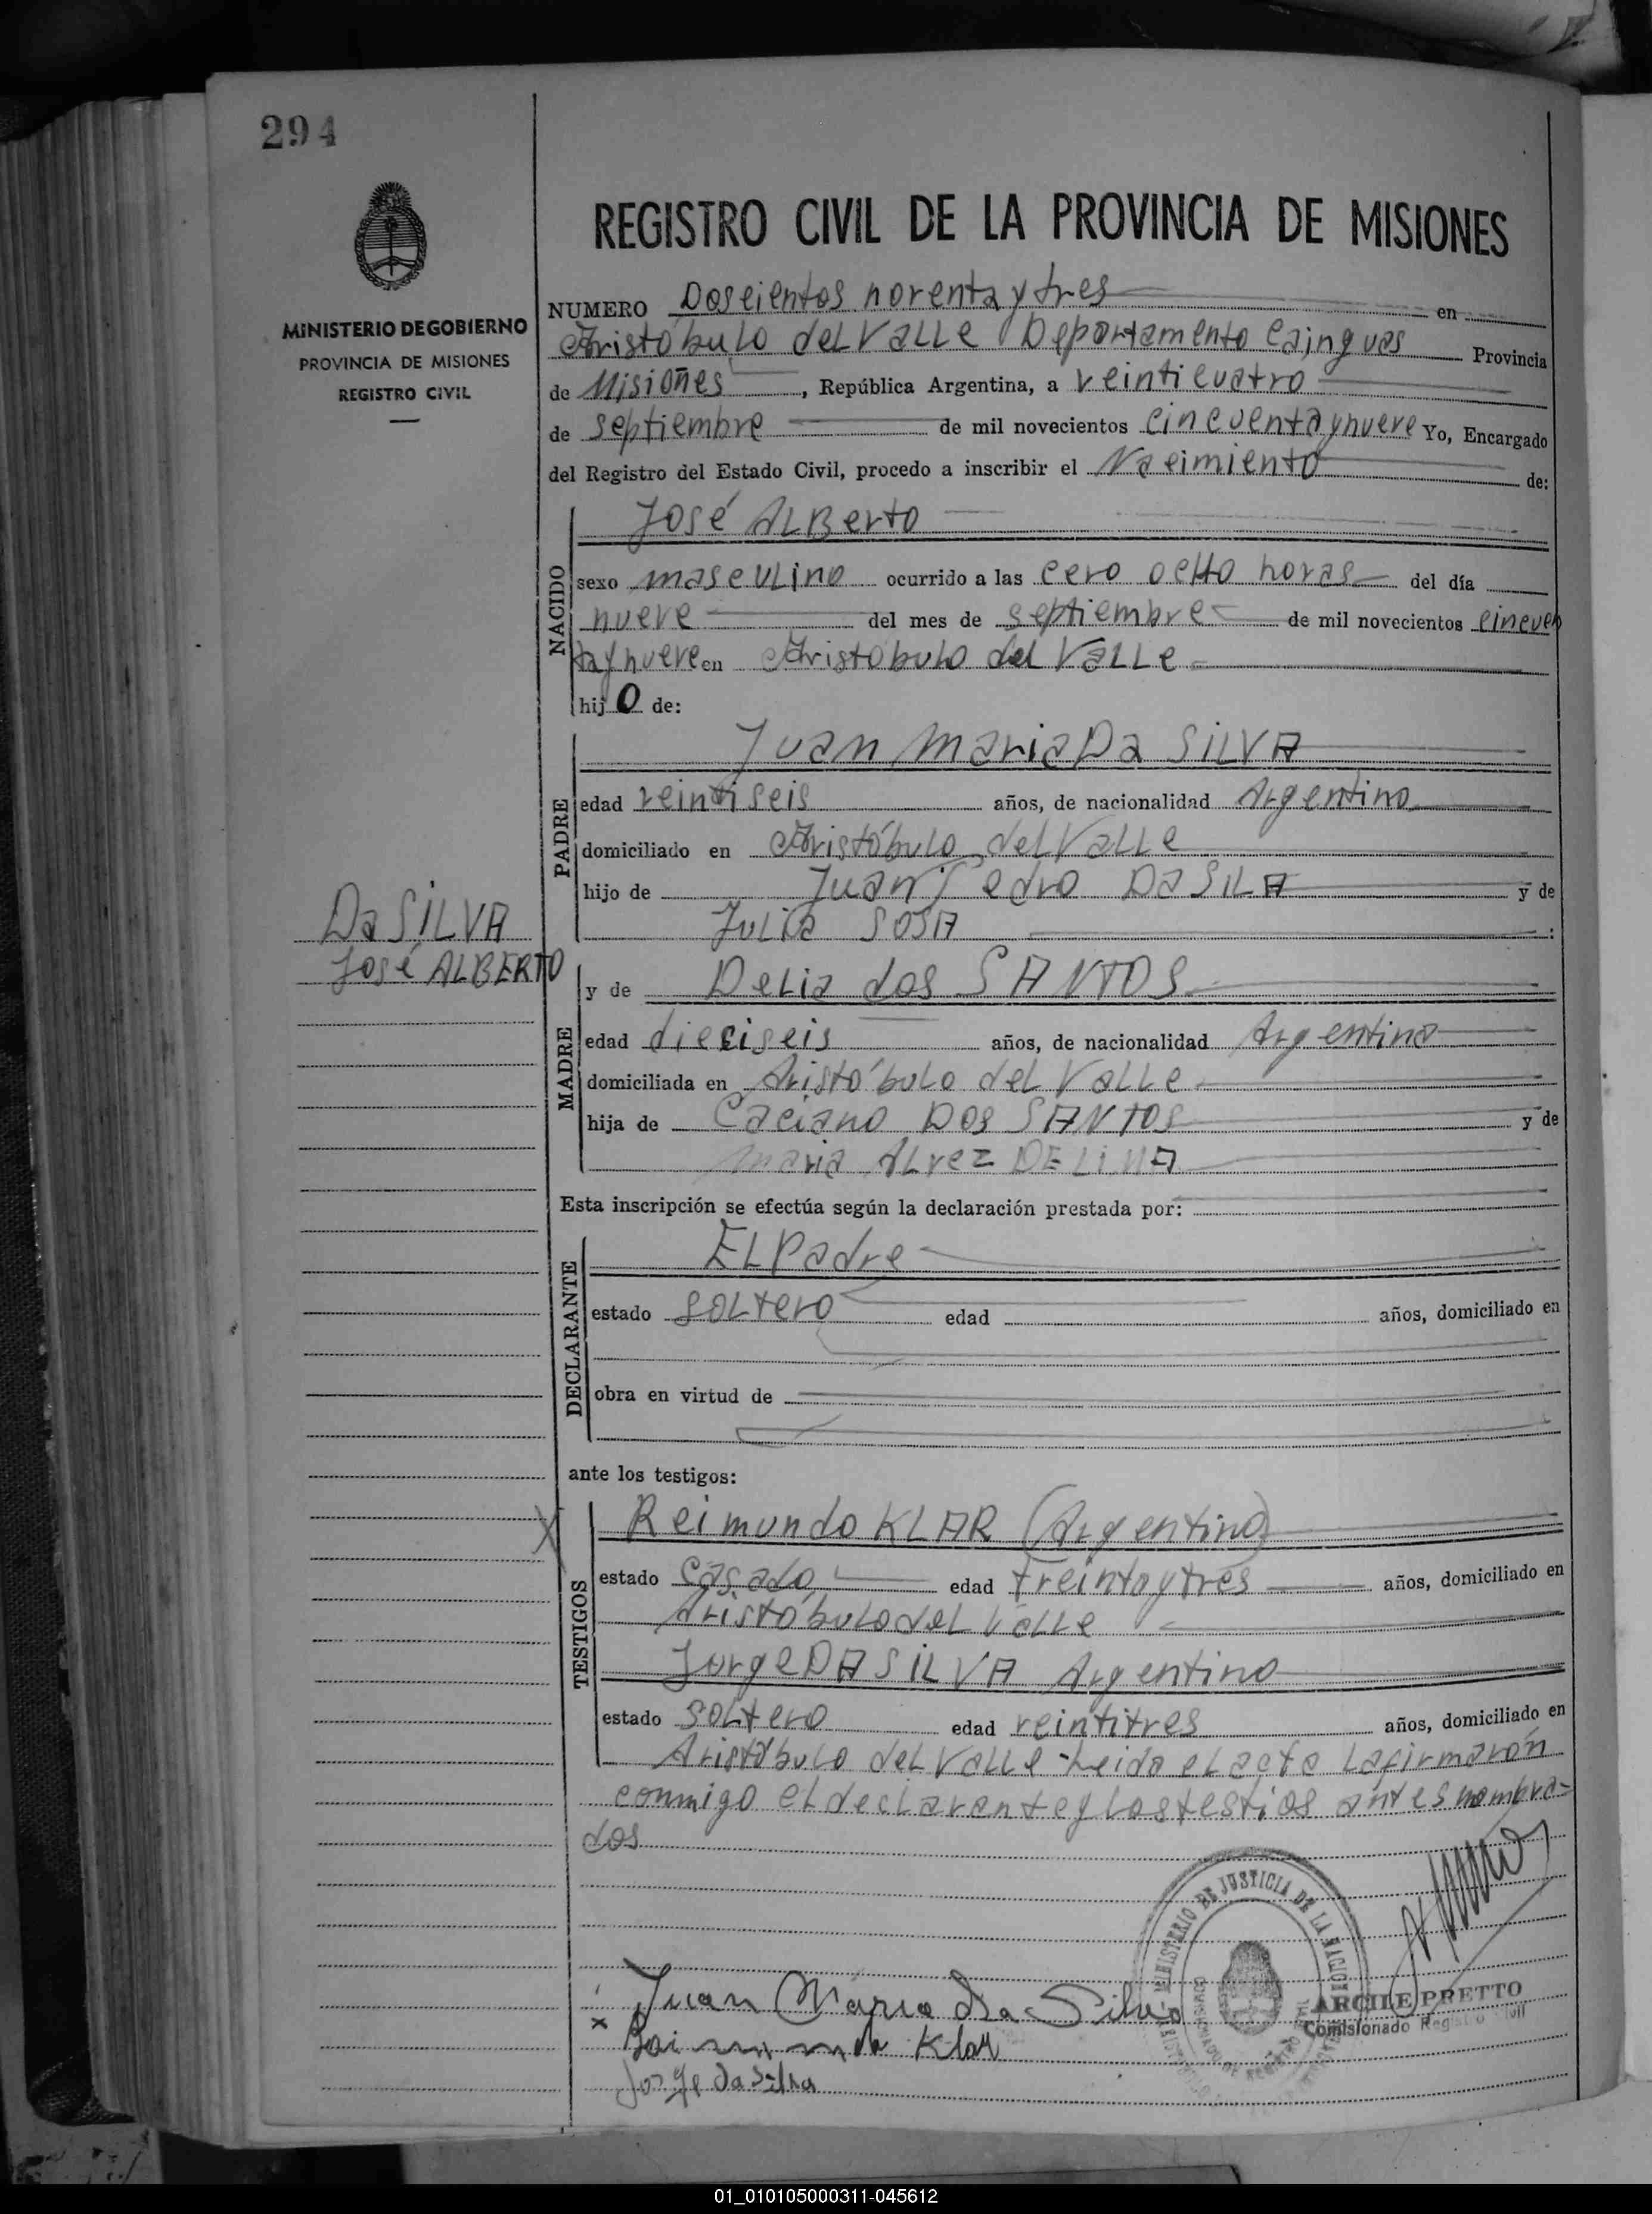 294
MINISTERIO DE GOBIERNO
PROVINCIA DE MISIONES
REGISTRO CIVIL
REGISTRO CIVIL DE LA PROVINCIA DE MISIONES
NUMERO Doscientos noventa y tres en
Aristóbulo del Valle Departamento Cainguas Provincia
de Misiones, República Argentina, a veinticuatro
de septiembre de mil novecientos cincuenta y nueve Yo, Encargado
del Registro del Estado Civil, procedo a inscribir el Nacimiento de:
NACIDO
José ALBerto
sexo masculino ocurrido a las cero ocho horas del día
nueve del mes de septiembre de mil novecientos cincuen
ta y nueve en Aristóbulo del Valle
hijo de:
PADRE
Juan Maria Da SILVA
edad veintiseis años, de nacionalidad Argentino
domiciliado en Aristóbulo del Valle
hijo de Juan Pedro DA SILA y de
Julia SOSA :
Da SILVA
José ALBERTO
MADRE
y de Delia dos SANTOS
edad dieciseis años, de nacionalidad Argentina
domiciliada en Aristóbulo del Valle
hija de Caciano Dos SANTOS y de
Maria Alvez DE LIMA
Esta inscripción se efectúa según la declaración prestada por:
DECLARANTE
El Padre
estado soltero edad años, domiciliado en
obra en virtud de
ante los testigos:
TESTIGOS
Reimundo KLAR (Argentino)
estado casado edad treinta y tres años, domiciliado en
Aristóbulo del Valle
Jorge DA SILVA Argentino
estado soltero edad veintitres años, domiciliado en
Aristóbulo del Valle - Leida el acta la firmaron
conmigo el declarante y los testios antes nombra-
dos
MINISTERIO DE JUSTICIA DE LA NACION
ARCILE PRETTO
Comisionado Registro Civil
Juan Maria Da Silva
Raimundo Klar
Jorge da Silva
01_010105000311-045612